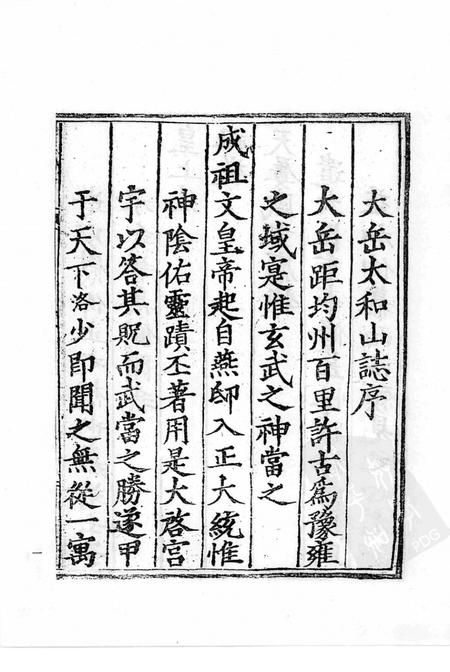 大岳太和山誌序
大岳距均州百里許古爲豫雍
之域寔惟玄武之神當之
成祖文皇帝起自燕邸入正大統惟
神陰佑靈蹟丕著用是大啓宫
宇以答其貺而武當之勝遂甲
于天下洛少即聞之無從一寓
一
PDG